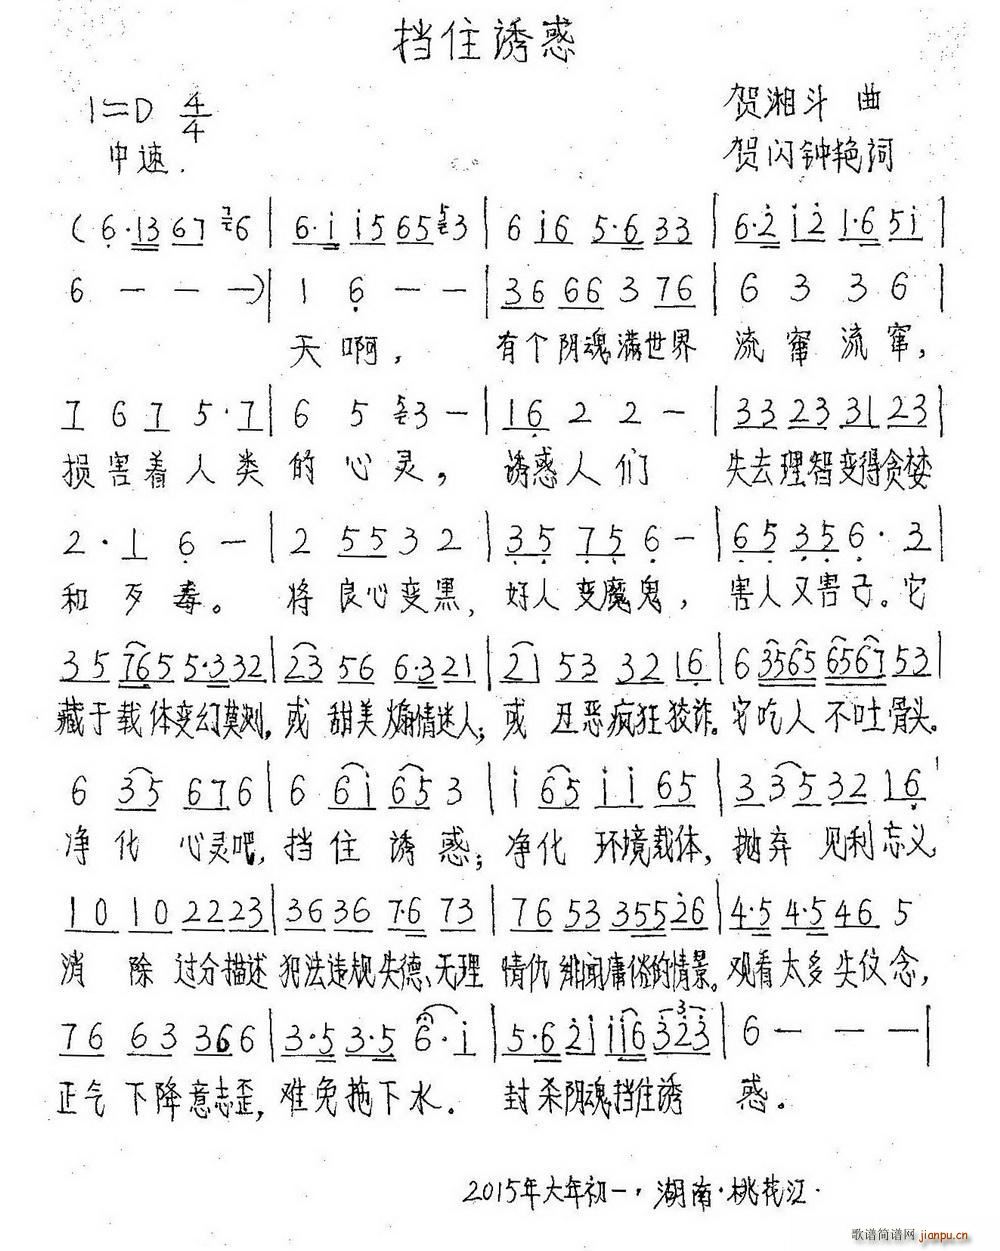 挡住诱惑
1=D 4/4
贺湘斗 曲
中速.
贺闪钟艳词
(6·13 67 7 6 | 6·i i5 65 5 3 | 6 i6 5·6 33 | 6·2 i2 1·6 5i |
6 — — —) | 1 6 — — | 36 66 3 76 | 6 3 3 6 |
天啊， 有个阴魂满世界 流窜流窜，
7 6 7 5·7 | 6 5 5 3 — | 16 2 2 — | 33 23 31 23 |
损害着人类的心灵， 诱惑人们 失去理智变得贪婪
2·1 6 — | 2 55 3 2 | 35 75 6 — | 65 35 6·3 |
和歹毒。 将良心变黑， 好人变魔鬼， 害人又害己。它
35 765 5·3 32 | 23 56 6·3 21 | 21 53 32 16 | 6 3565 6567 53 |
藏于载体变幻莫测，或甜美煽情迷人；或丑恶疯狂狡诈。它吃人不吐骨头。
6 35 67 6 | 6 6i 65 3 | i 65 ii 65 | 3 35 32 16 |
净化心灵吧，挡住诱惑；净化环境载体，抛弃见利忘义
10 10 22 23 | 36 36 7·6 73 | 76 53 355 26 | 4·5 4·5 46 5
消除过分描述犯法违规失德、无理情仇绯闻庸俗的情景。观看太多失仪念，
76 63 366 6 | 3·5 3·5 6·i | 5·6 2i ii6 323 | 6 — — — |
正气下降意志歪，难免拖下水。 封杀阴魂挡住诱惑。
2015年大年初一，湖南·桃花江·
歌谱简谱网 jianpu.cn